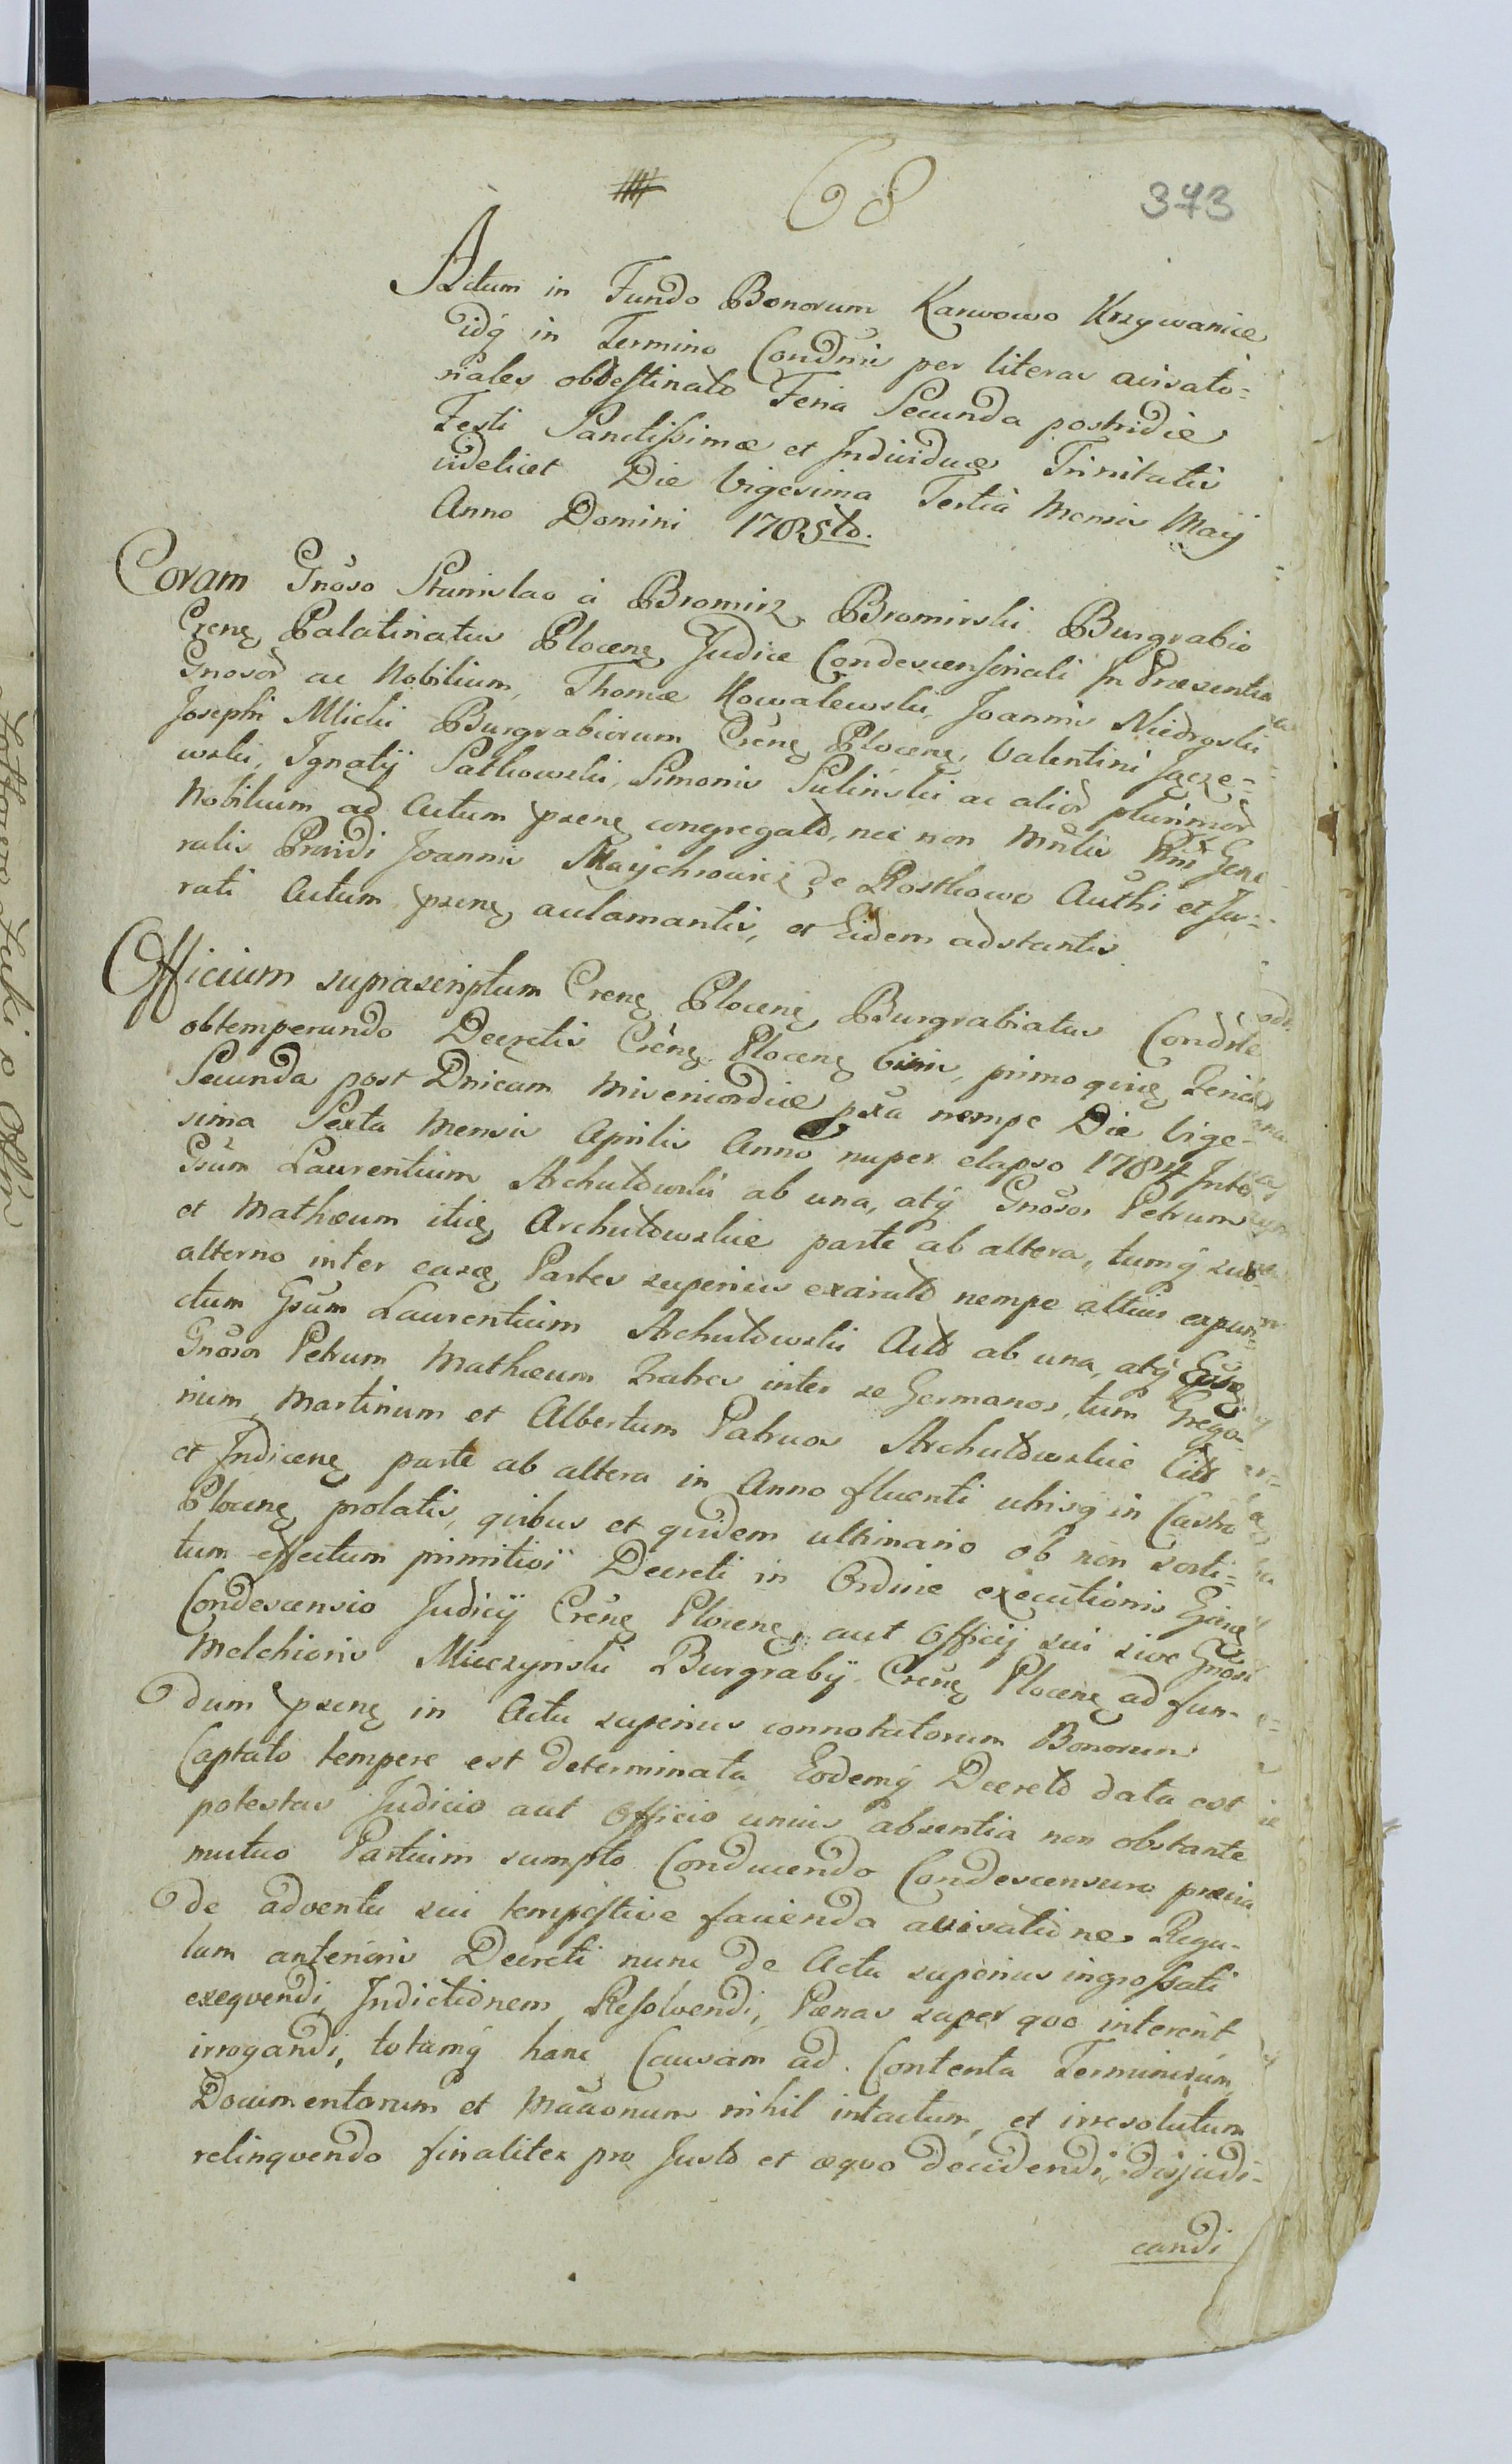 68
373
Actum in Fundo Bonorum Karwowo Krzywanice
idq́ in Termino Condnii per literas avisato=
riales obdestinato Feria Secunda postridie
Festi Sanctissimæ et Individuæ Trinitatis
videlicet Die Vigesima Tertia Mensis Maij
Anno Domini 1785to.
Coram Gnõso Stanislao à Bromirz Bromirski Burgrabio
Crenę Palatinatus Plocenę Judice Condescensionali In Præsentia
Gnosor̃ ac Nobilium, Thomæ Kowalewski, Joannis Niedroski
Josephi Mlicki Burgrabiorum Crẽnę Plocenę, Valentini Jącze=
wski, Ignatij Sałkowski, Simonis Suliński ac alior̃ plurimor̃
Nobilium ad Actum prænę congregato, nec non Mnlis Rni Gene
ralis Providi Joannis Maychrowicz de Rostkowo Authi et Ju=
rati Actum prænę aclamantis, et Eidem adstantis
Officium suprascriptum Crenę Plocenę Burgrabiatus Condsle
obtemperando Decretis Crẽnę Plocenę binis, primo quię Feria
Secunda post Dnicam Misericordiæ pxa nempe Die Vige=
sima Sexta Mensis Aprilis Anno nuper elapso 1784 Inter
Gsũm Laurentium Archutowski ab una, atq́ Gnõsos Petrum
et Mathæum itię Archutowskie parte ab altera, tumq́ sub
alterno inter easę Partes superius exarato nempe altius expun=
ctum Gsũm Laurentium Archutowski Acto ab una, atq́
Gnõsos Petrum Mathæum Fratres inter se Germanos, tum Grego=
rium, Martinum et Albertum Patruos Archutowskie Cito
et Indicenę parte ab altera in Anno fluenti utrisq́ in Castro
Plocenę prolatis, quibus et quidem ultimario ob non sorti=
tum effectum primitivi Decreti in Ordine executionis Ejusę
Condescensio Judicij Crẽnę Plocenę, aut Officij sui sive Gnõsi
Melchioris Mieczynski Burgrabij Crẽnę Plocenę ad fun=
dum prænę in Actu superius connotatorum Bonorum
Captato tempore est determinata Eodemq́ Decreto data est
potestas Judicio aut Officio unius absentia non obstante
mutuo Partium sumpto Conducendo Condescensuro prævia
de adventu sui tempestive facienda avisatione Regu=
lam anterioris Decreti nunc de Actu superius ingrossati
exequendi, Indictionem Resolvendi, Pænas super quo interent
irrogandi, totamq́ hanc Causam ad Contenta Terminorum
Documentorum et Mũaonum nihil intactum, et irresolutum
relinquendo finaliter pro Justo et æquo decidendi, disjudi=
candi